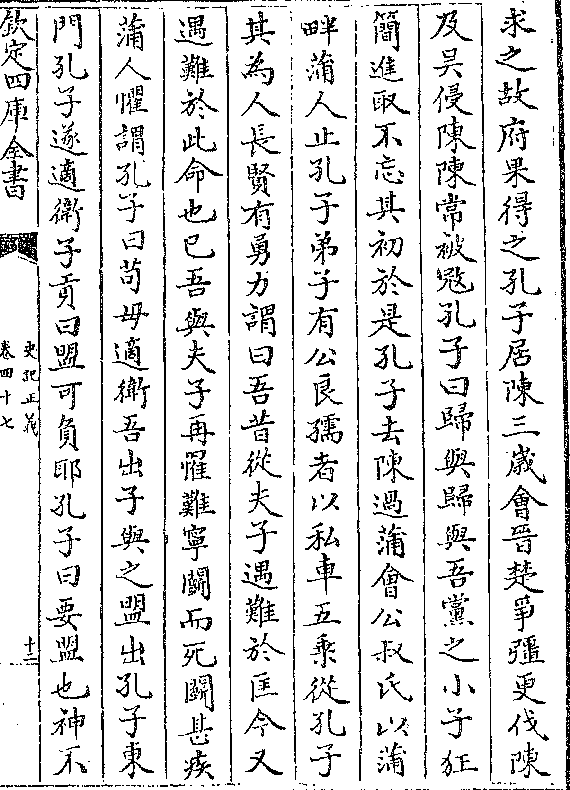 求之故府果得之孔子居陳三歲會晉楚爭彊更伐陳
及吴侵陳陳常被冦孔子曰歸與歸與吾黨之小子狂
簡進取不忘其初於是孔子去陳過蒲會公叔氏以蒲
畔蒲人止孔子弟子有公良孺者以私車五乘從孔子
其為人長賢有勇力謂曰吾昔從夫子遇難於匡今又
遇難於此命也已吾與夫子再罹難寧鬭而死鬭甚疾
蒲人懼謂孔子曰苟毋適衛吾出子與之盟出孔子東
門孔子遂適衛子貢曰盟可負耶孔子曰要盟也神不
欽定四庫全書
史記正義
卷四十七
十二